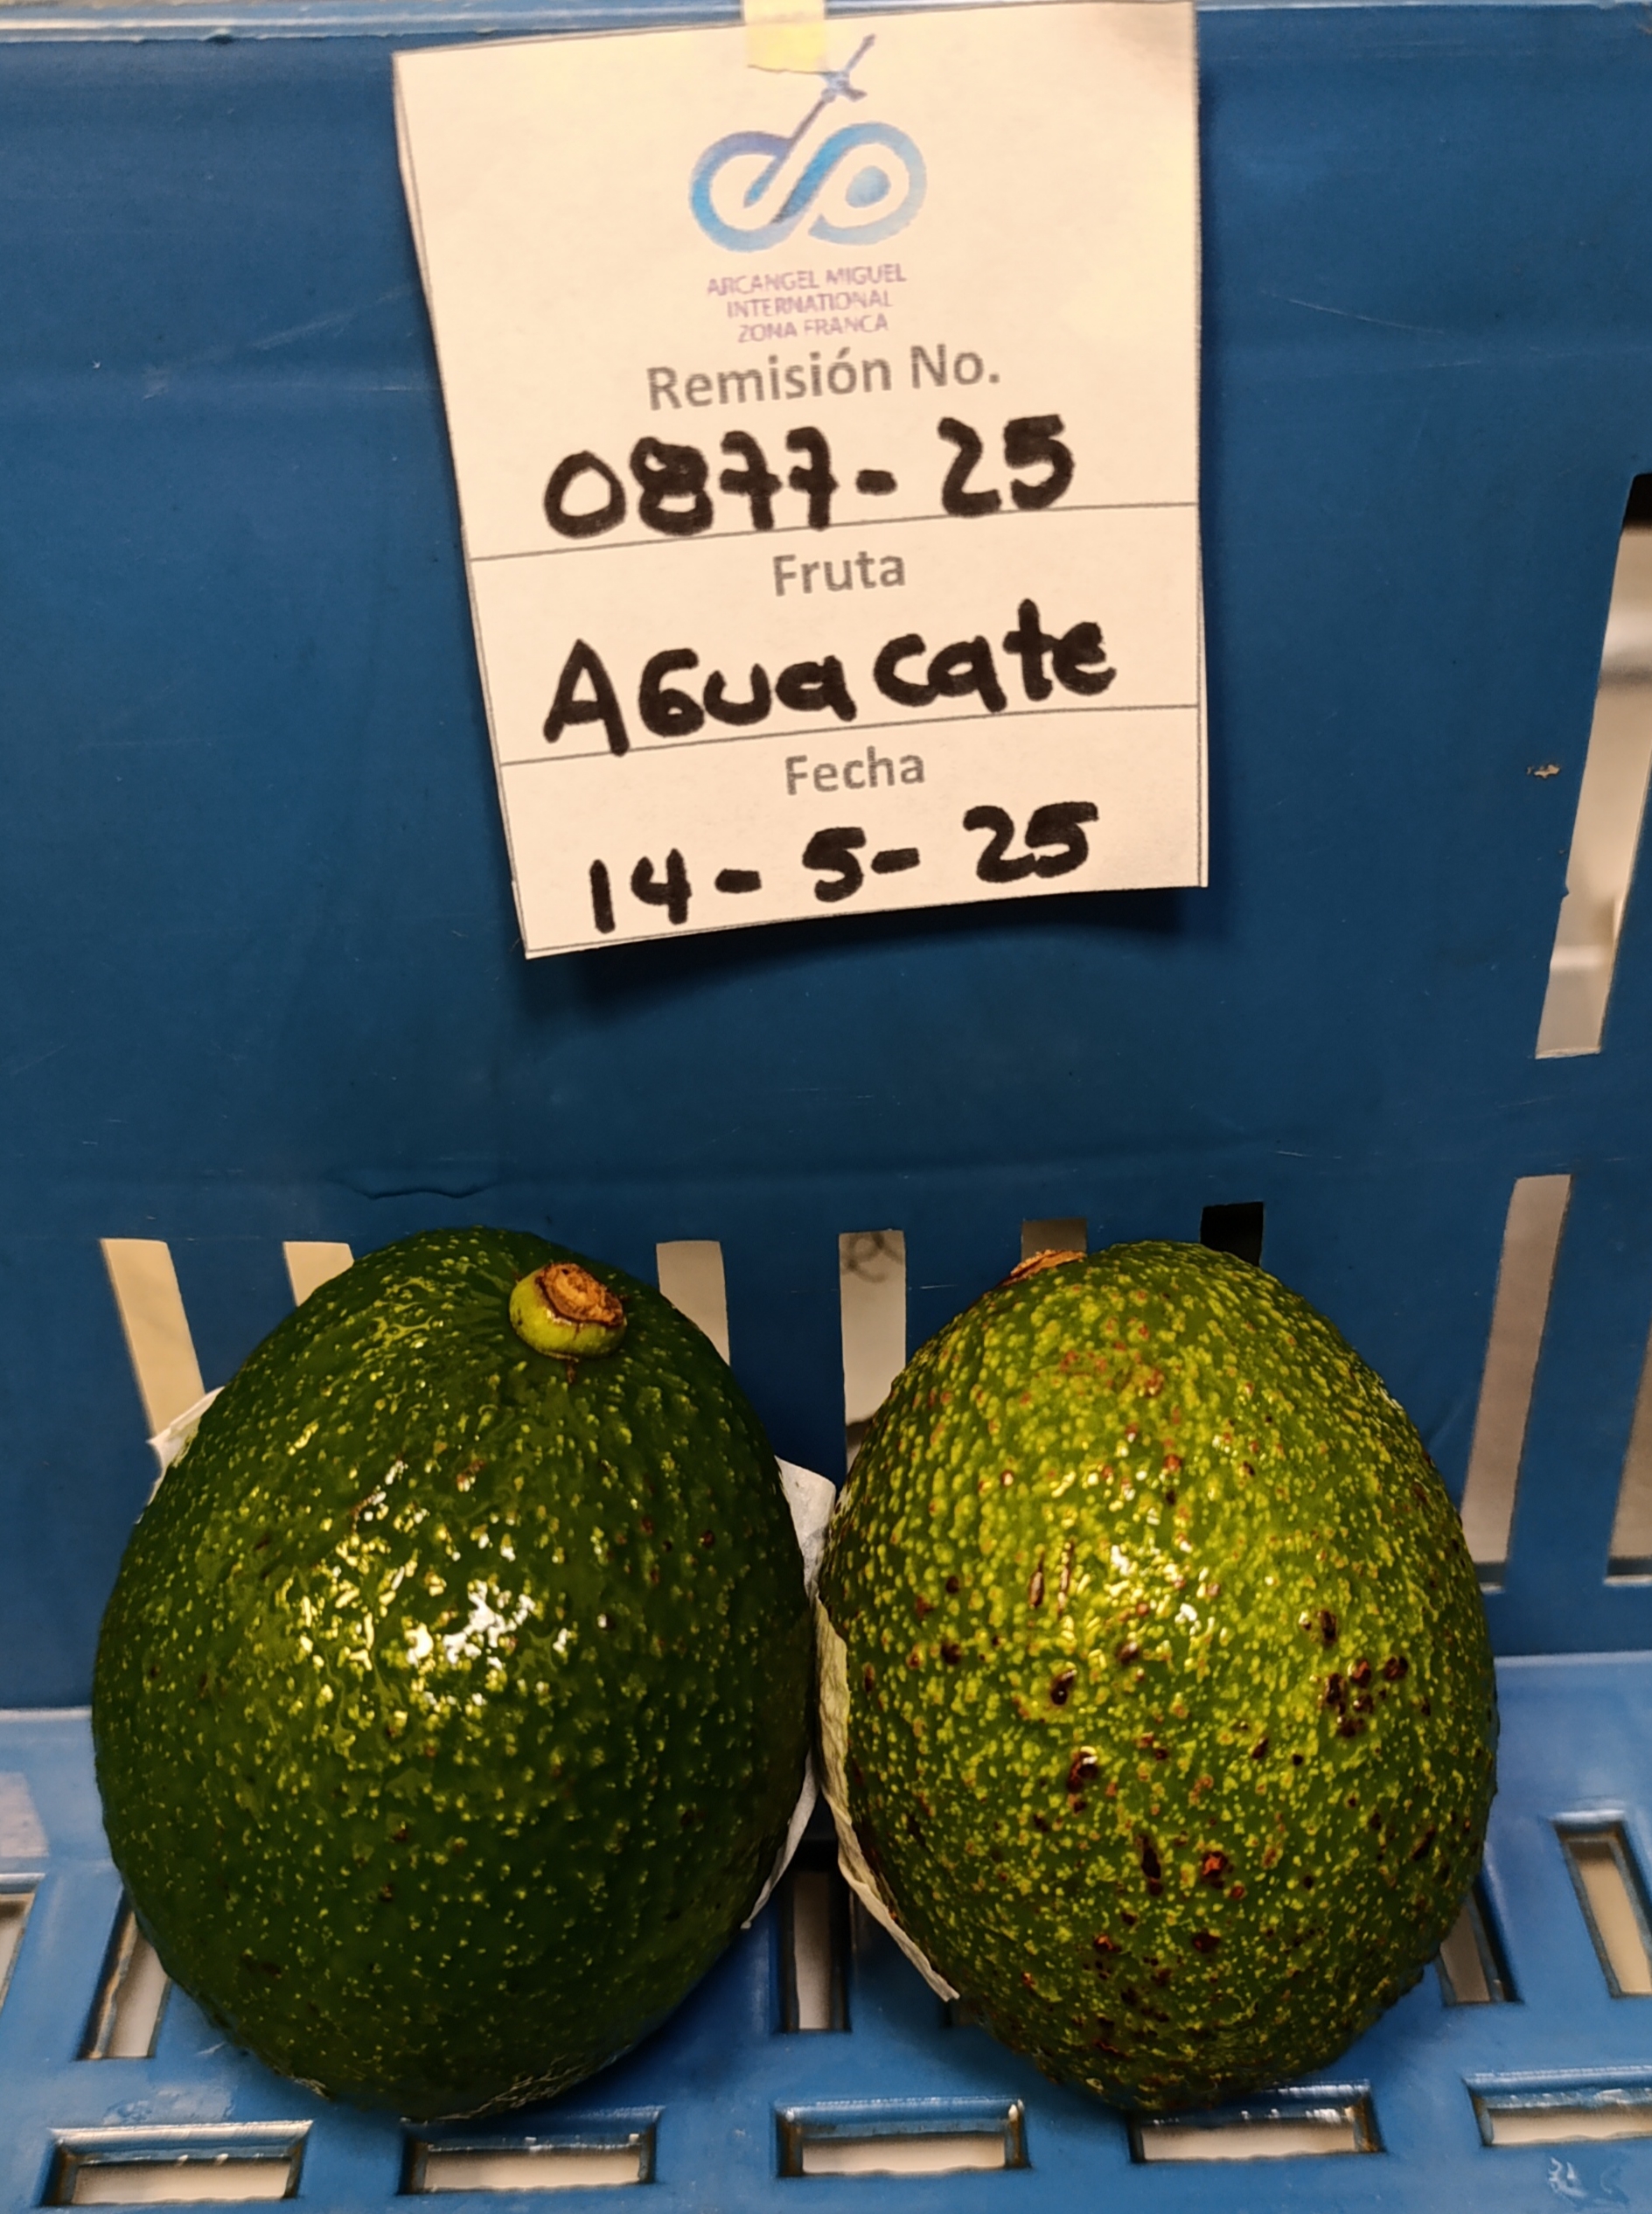 ARCANGEL MIGUEL
INTERNATIONAL
ZONA FRANCA
Remisión No.
0877-25
Fruta
AGuacate
Fecha
14-5-25